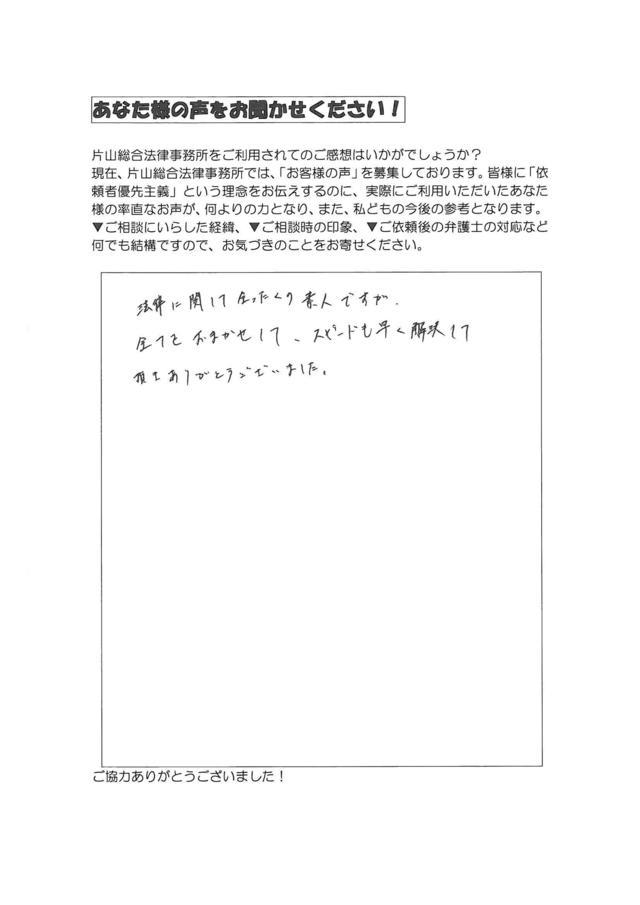 あなた様の声をお聞かせください！
片山総合法律事務所をご利用されてのご感想はいかがでしょうか？
現在、片山総合法律事務所では、「お客様の声」を募集しております。皆様に「依
頼者優先主義」という理念をお伝えするのに、実際にご利用いただいたあなた
様の率直なお声が、何よりの力となり、また、私どもの今後の参考となります。
▼ご相談にいらした経緯、▼ご相談時の印象、▼ご依頼後の弁護士の対応など
何でも結構ですので、お気づきのことをお寄せください。
法律に関して全ったくの素人ですが、
全てをおまかせして、スピードも早く解決して
頂きありがとうございました。
ご協力ありがとうございました！